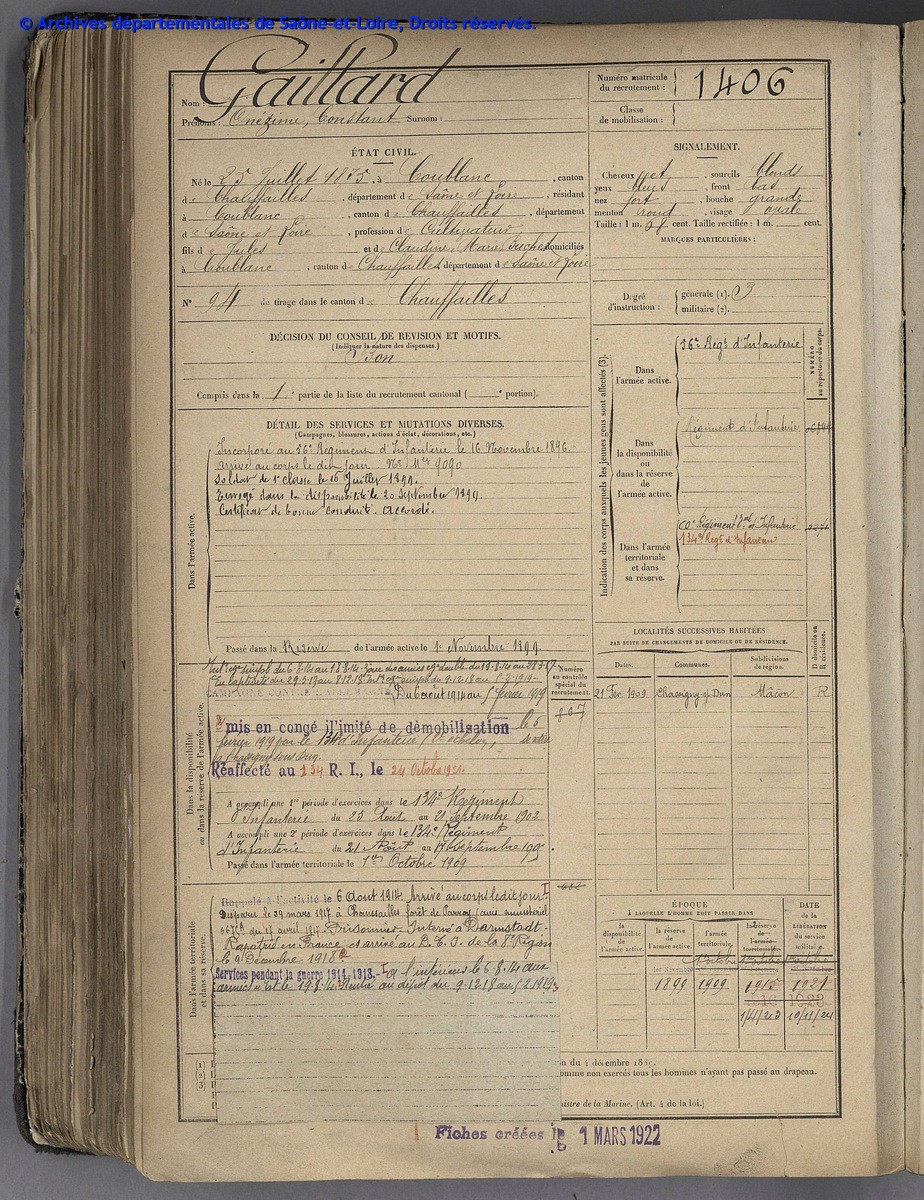 © Archives départementales de Saône-et-Loire, Droits réservés.
Nom : Gaillard
Prénoms : Onézime, Constant Surnom :
Numéro matricule du recrutement : 1406
Classe de mobilisation :
ÉTAT CIVIL.
Né le 25 Juillet 1875, à Coublanc, canton
de Chauffailles, département de Saône et Loire, résidant
à Coublanc, canton de Chauffailles, département
de Saône et Loire, profession de Cultivateur,
fils de Jules et de Claudine, Marie domiciliés
à Coublanc, canton de Chauffailles département de Saône et Loire
N° 94 de tirage dans le canton de Chauffailles
SIGNALEMENT.
Cheveux et, sourcils blonds
yeux bleus, front bas
nez fort, bouche grande
menton rond, visage ovale
Taille : 1 m. cent. Taille rectifiée : 1 m. cent.
MARQUES PARTICULIÈRES :
Degré d'instruction : générale (1). 3
militaire (2).
DÉCISION DU CONSEIL DE REVISION ET MOTIFS.
(Indiquer la nature des dispenses.)
Bon
Compris dans la 1e partie de la liste du recrutement cantonal ( e portion).
DÉTAIL DES SERVICES ET MUTATIONS DIVERSES.
(Campagnes, blessures, actions d'éclat, décorations, etc.)
Dans l'armée active.
Incorporé au 56e Régiment d'Infanterie le 16 Novembre 1896
arrivé au corps le dit jour : No Mle 9090
Soldat de 1e classe le 16 Juillet 1899.
Envoyé dans la disponibilité le 20 Septembre 1899.
Certificat de bonne conduite. Accordé.
Passé dans la Réserve de l'armée active le 1er Novembre 1899.
Indication des corps auxquels les jeunes gens sont affectés (3).
NUMÉRO au répertoire du corps.
Dans l'armée active.
56e Régt d'Infanterie
Dans la disponibilité ou dans la réserve de l'armée active.
Régiment d'Infanterie.
Dans l'armée territoriale et dans sa réserve.
60e Régiment d'Infanterie
134e Regt d'Infanterie
LOCALITÉS SUCCESSIVES HABITÉES
PAR SUITE DE CHANGEMENTS DE DOMICILE OU DE RÉSIDENCE.
Dates. Communes. Subdivisions de région. D. domicile ou R. résidence.
21 Fev. 1909 Chassigny-s/-Dun Mâcon R
Dans la disponibilité ou dans la réserve de l'armée active.
Numéro au contrôle spécial du recrutement.
807
En captivité du 29.3.17 au 8.12.18 Intre
CAMPAGNE CONTRE L'ALLEMAGNE Du 6 août 1914 au 5 février 1919
mis en congé illimité de démobilisation le 5
février 1919 par le 134e d'Infanterie
Chassigny sous Dun
Réaffecté au 134 R. I., le 24 Octobre 1921.
A accompli une 1re période d'exercices dans le 134e Régiment
d'Infanterie du 25 Aout au 21 Septembre 1902
A accompli une 2e période d'exercices dans le 134e Régiment
d'Infanterie du 21 Août au Septembre 1905.
Passé dans l'armée territoriale le 1er Octobre 1909
Dans l'armée territoriale et dans sa réserve.
Rappelé à l'activité le 6 Aout 1914 Arrivé au corps le dit jour.
Disparu le 29 mars 1917 à forêt de Parroy (avis ministériel
du 17 avril 1917. Prisonnier - Interné à Darmstadt -
Rapatrié en France et arrivé au de la 8e Région
le 9 Décembre 1918
Services pendant la guerre 1914-1918. - à l'intérieur le 6.8.14 aux
armées le 19.8.14 Rentré au dépôt du 9.12.18 au 5.2.1919.
ÉPOQUE
À LAQUELLE L'HOMME DOIT PASSER DANS
la disponibilité de l'armée active. la réserve de l'armée active. l'armée territoriale. la réserve de l'armée territoriale.
DATE de la LIBÉRATION du service militaire.
1er Novembre
1899 1909 1915 1921
1/4/23 10/11/24
(1)
(2)
(3)
istre de la Marine. (Art. 4 de la loi.)
Fiches créées le 1 MARS 1922